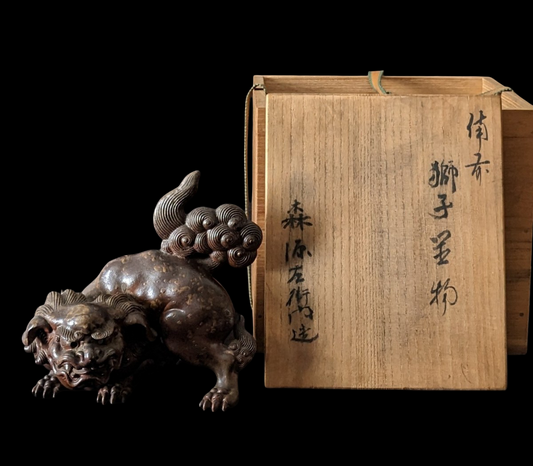 備前
獅子置物
森源左衛門造